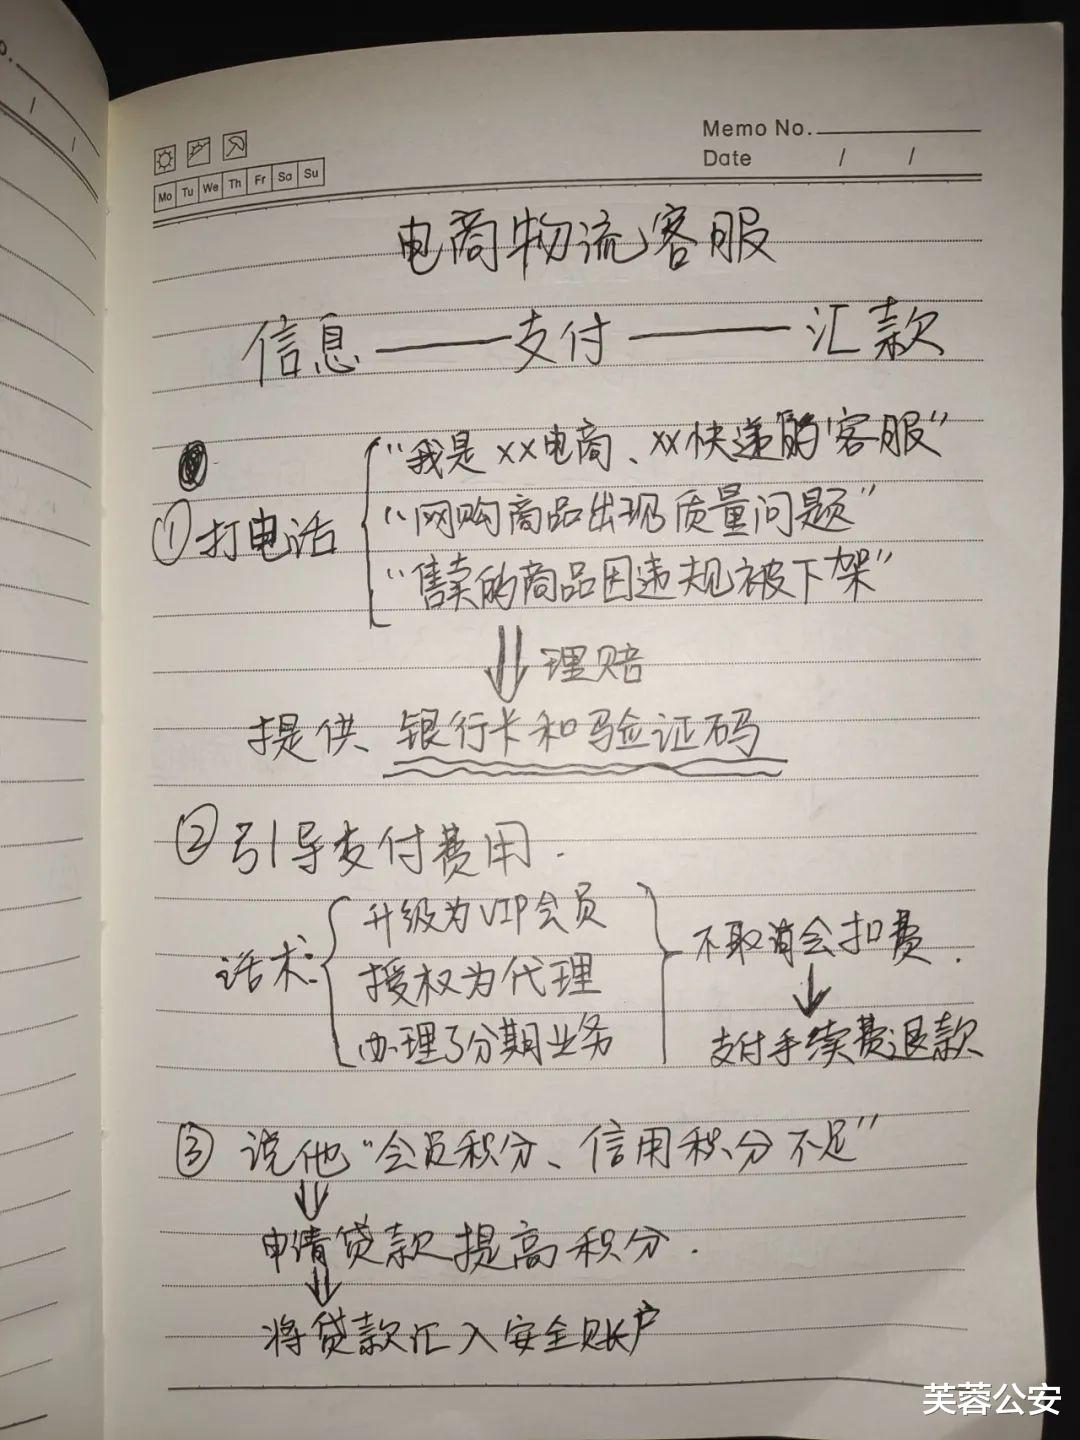 Memo No.
Date / /
Mo Tu We Th Fr Sa Su
电商物流客服
信息——支付——汇款
“我是××电商、××快递的‘客服”
“网购商品出现质量问题”
①打电话
“售卖的商品因违规被下架”
理赔
提供、银行卡和验证码
②引导支付费用.
升级为VIP会员
不取消会扣费.
话术:
授权为代理
办理了分期业务
支付手续费退款
③说他“会员积分、信用积分不足”
申请贷款提高积分.
将贷款汇入安全账户
芙蓉公安